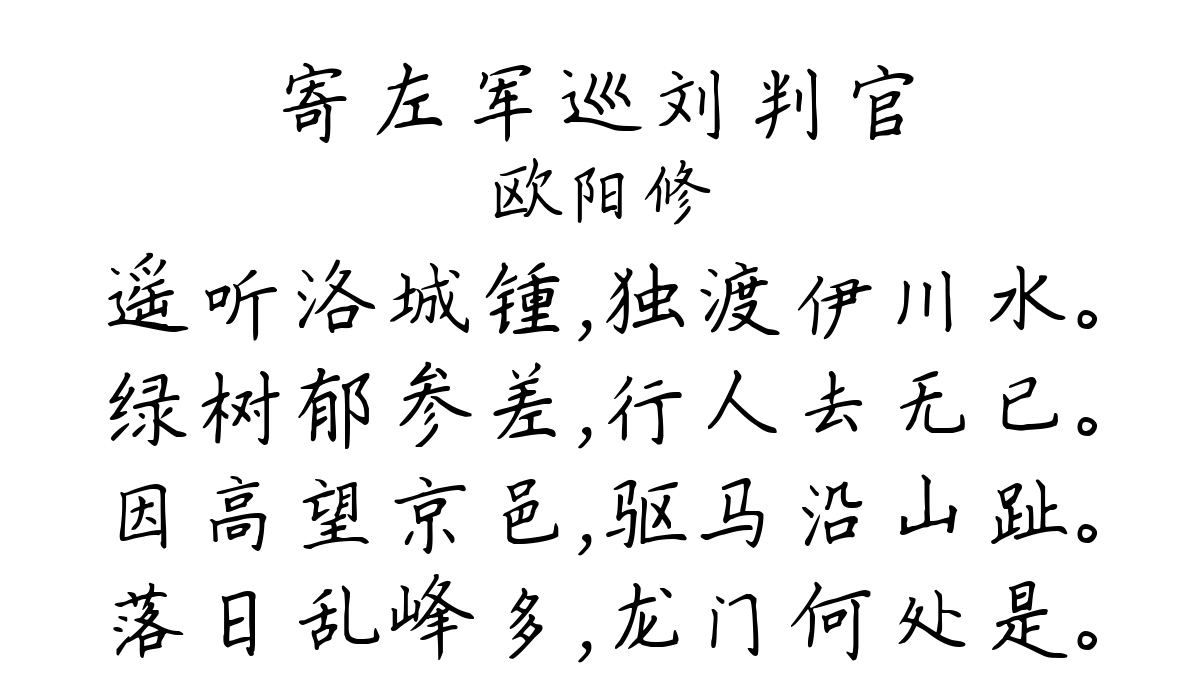 寄左军巡刘判官
欧阳修
遥听洛城锺,独渡伊川水。
绿树郁参差,行人去无已。
因高望京邑,驱马沿山趾。
落日乱峰多,龙门何处是。